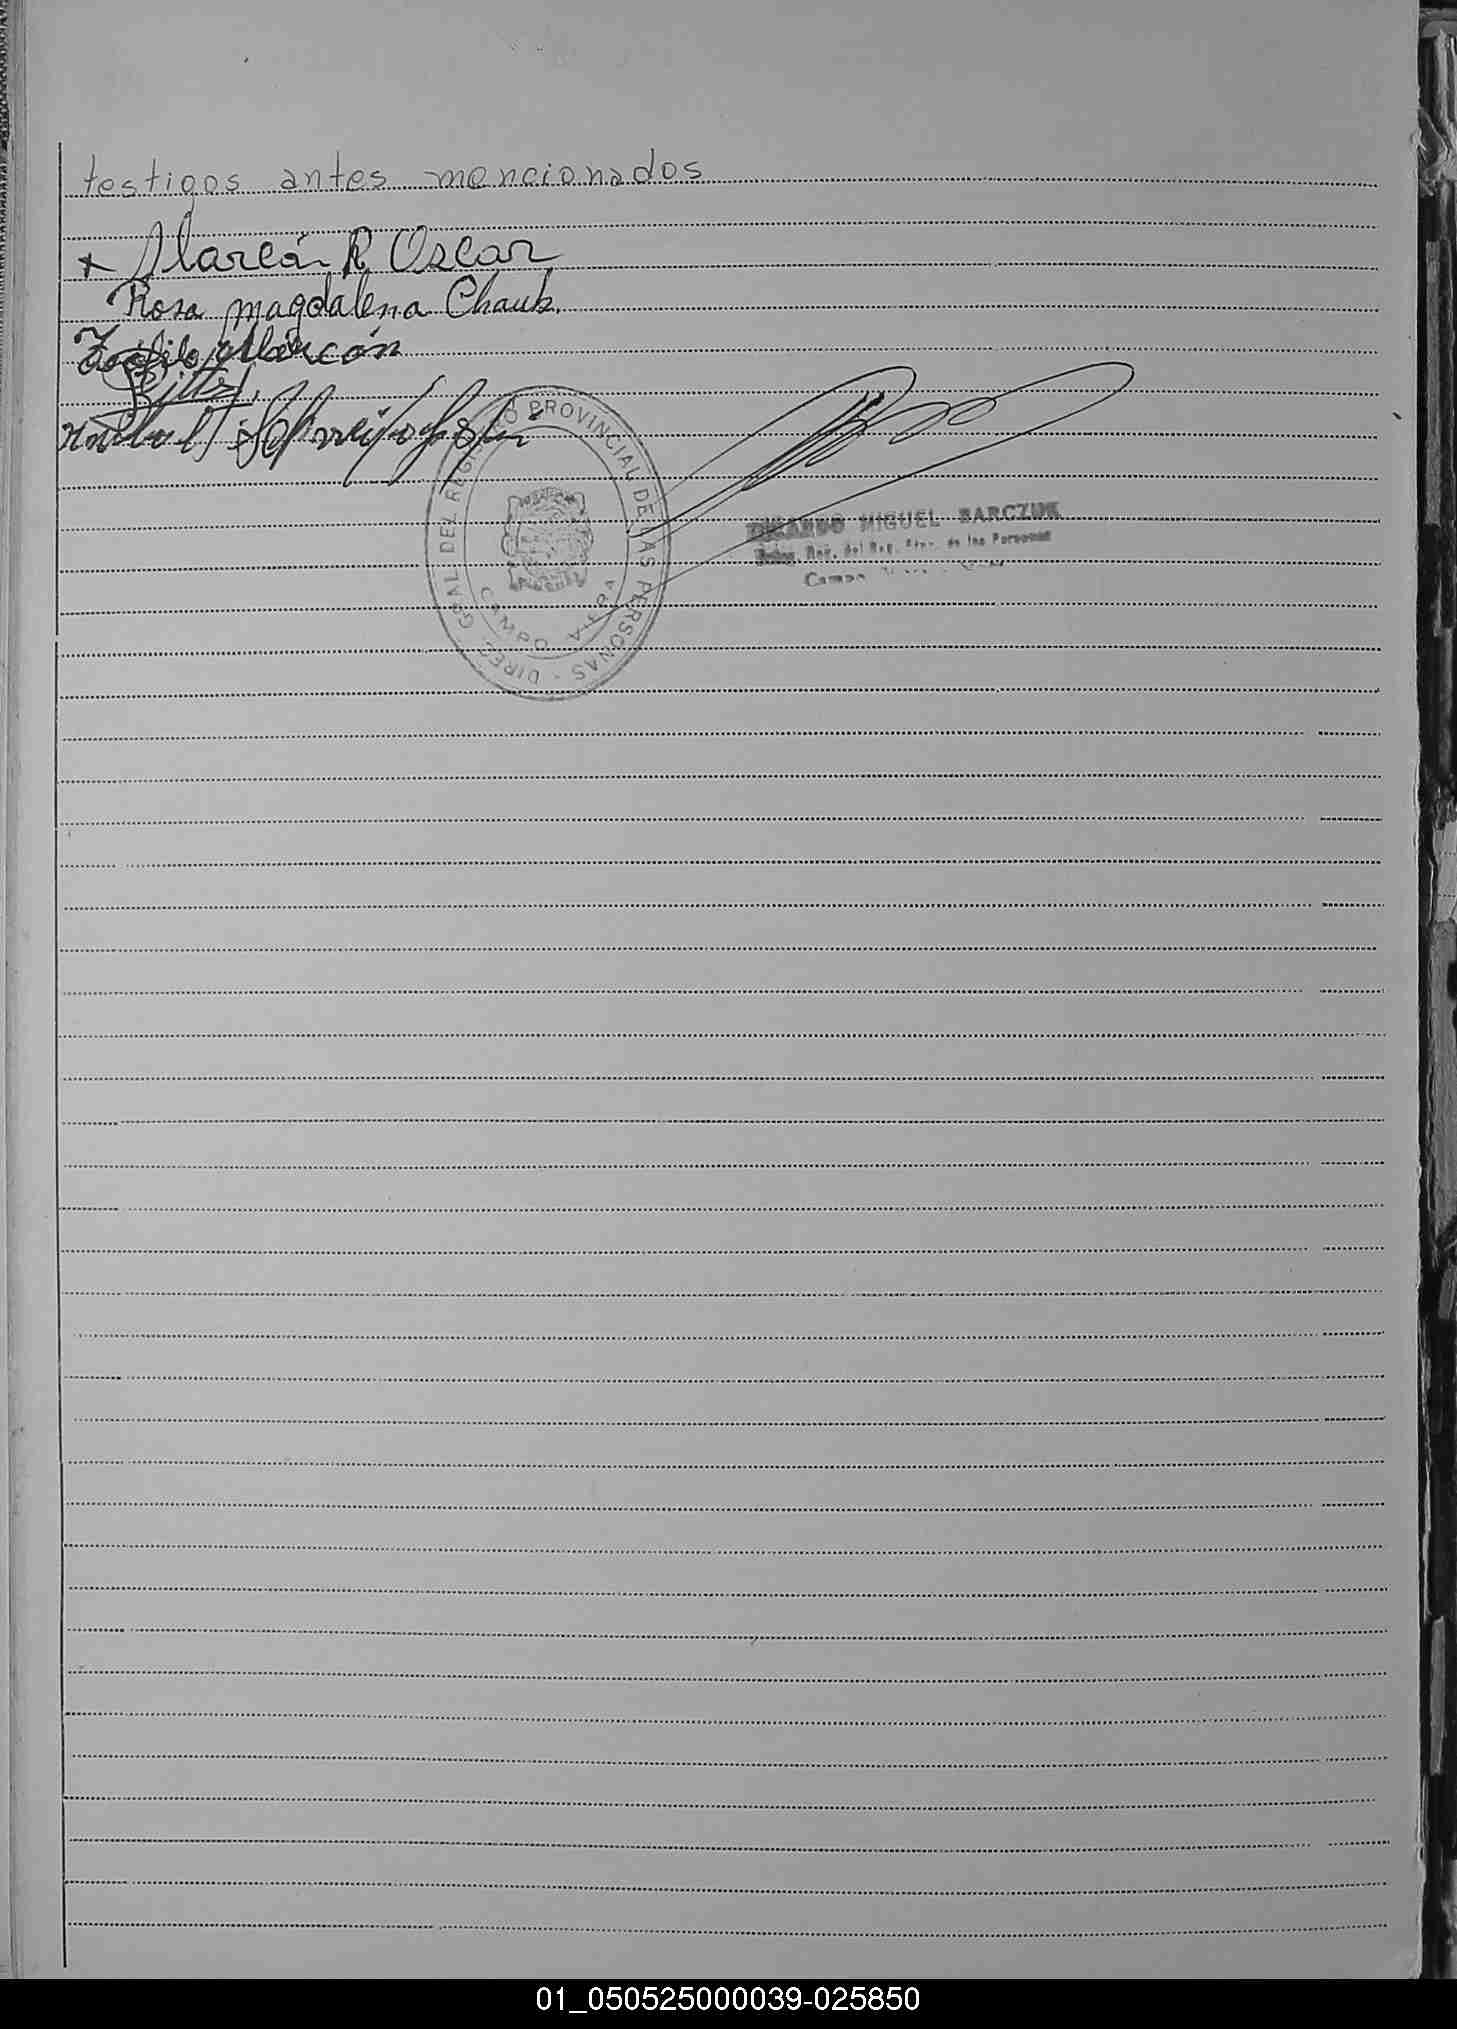 testigos antes mencionados
x Alarcón R Oscar
Rosa magdalena Chauk.
Teófilo Alarcón
DIREC. GRAL DEL REGISTRO PROVINCIAL DE LAS PERSONAS -
CAMPO VIERA
RICARDO MIGUEL BARCZUK
Reg. del Reg. de las Personas
Campo
01_050525000039-025850